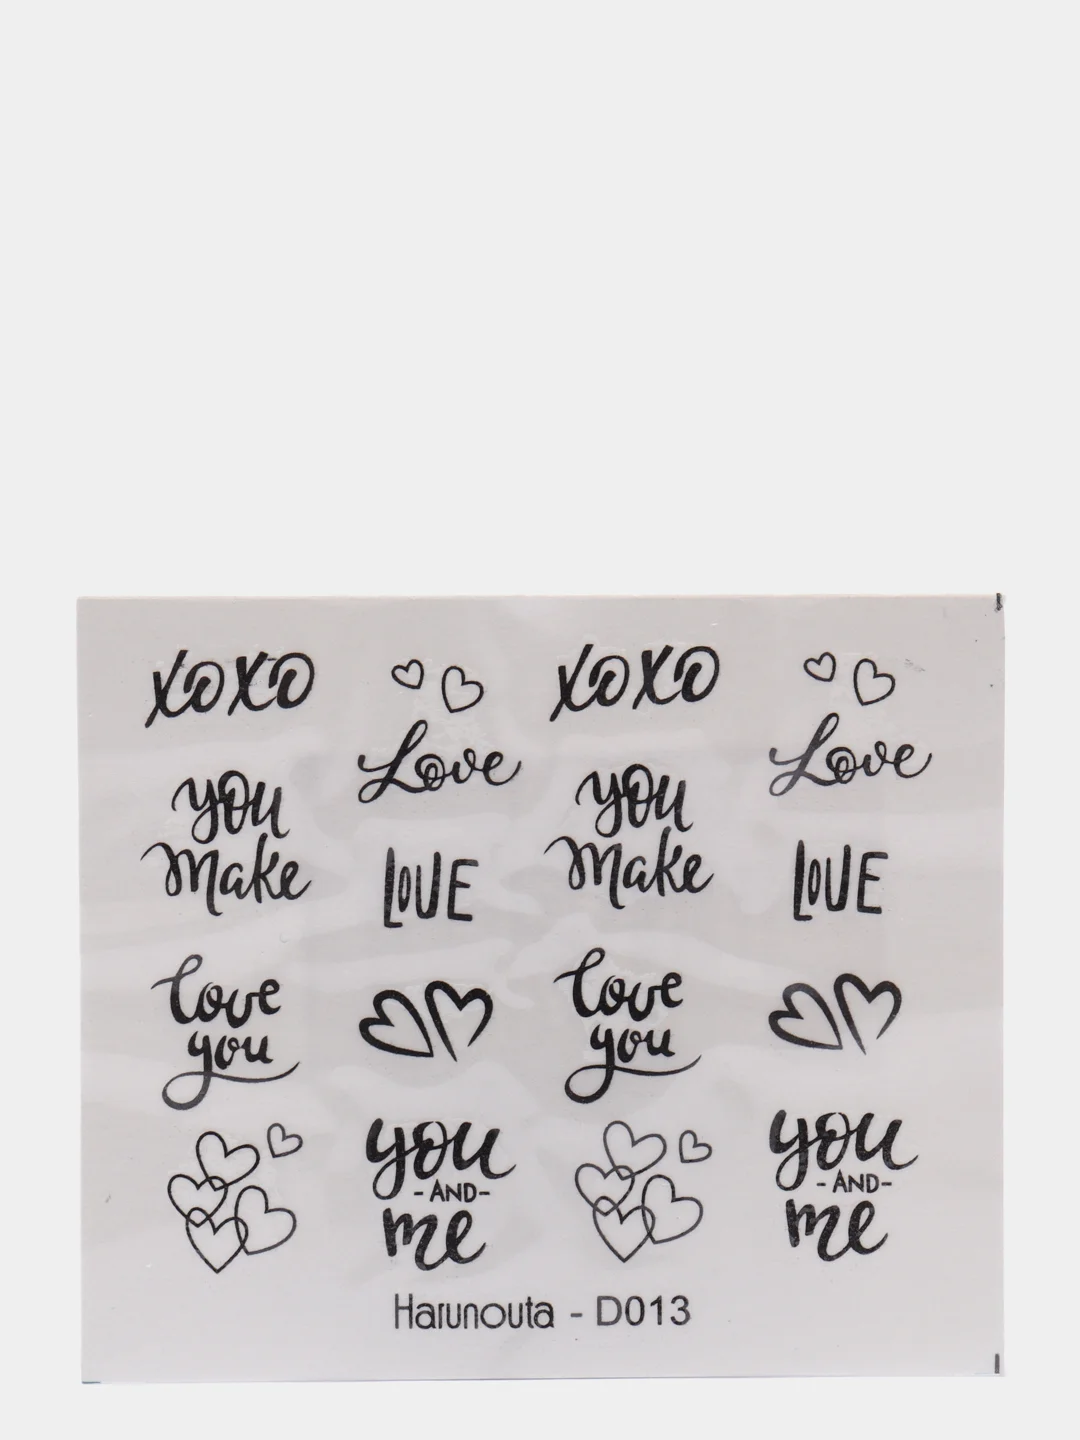 XOXO
Love
XOXO
Love
you
make
LOVE
you
make
LOVE
love
you
love
you
you
-AND-
me
you
-AND-
me
Harunouta - D013